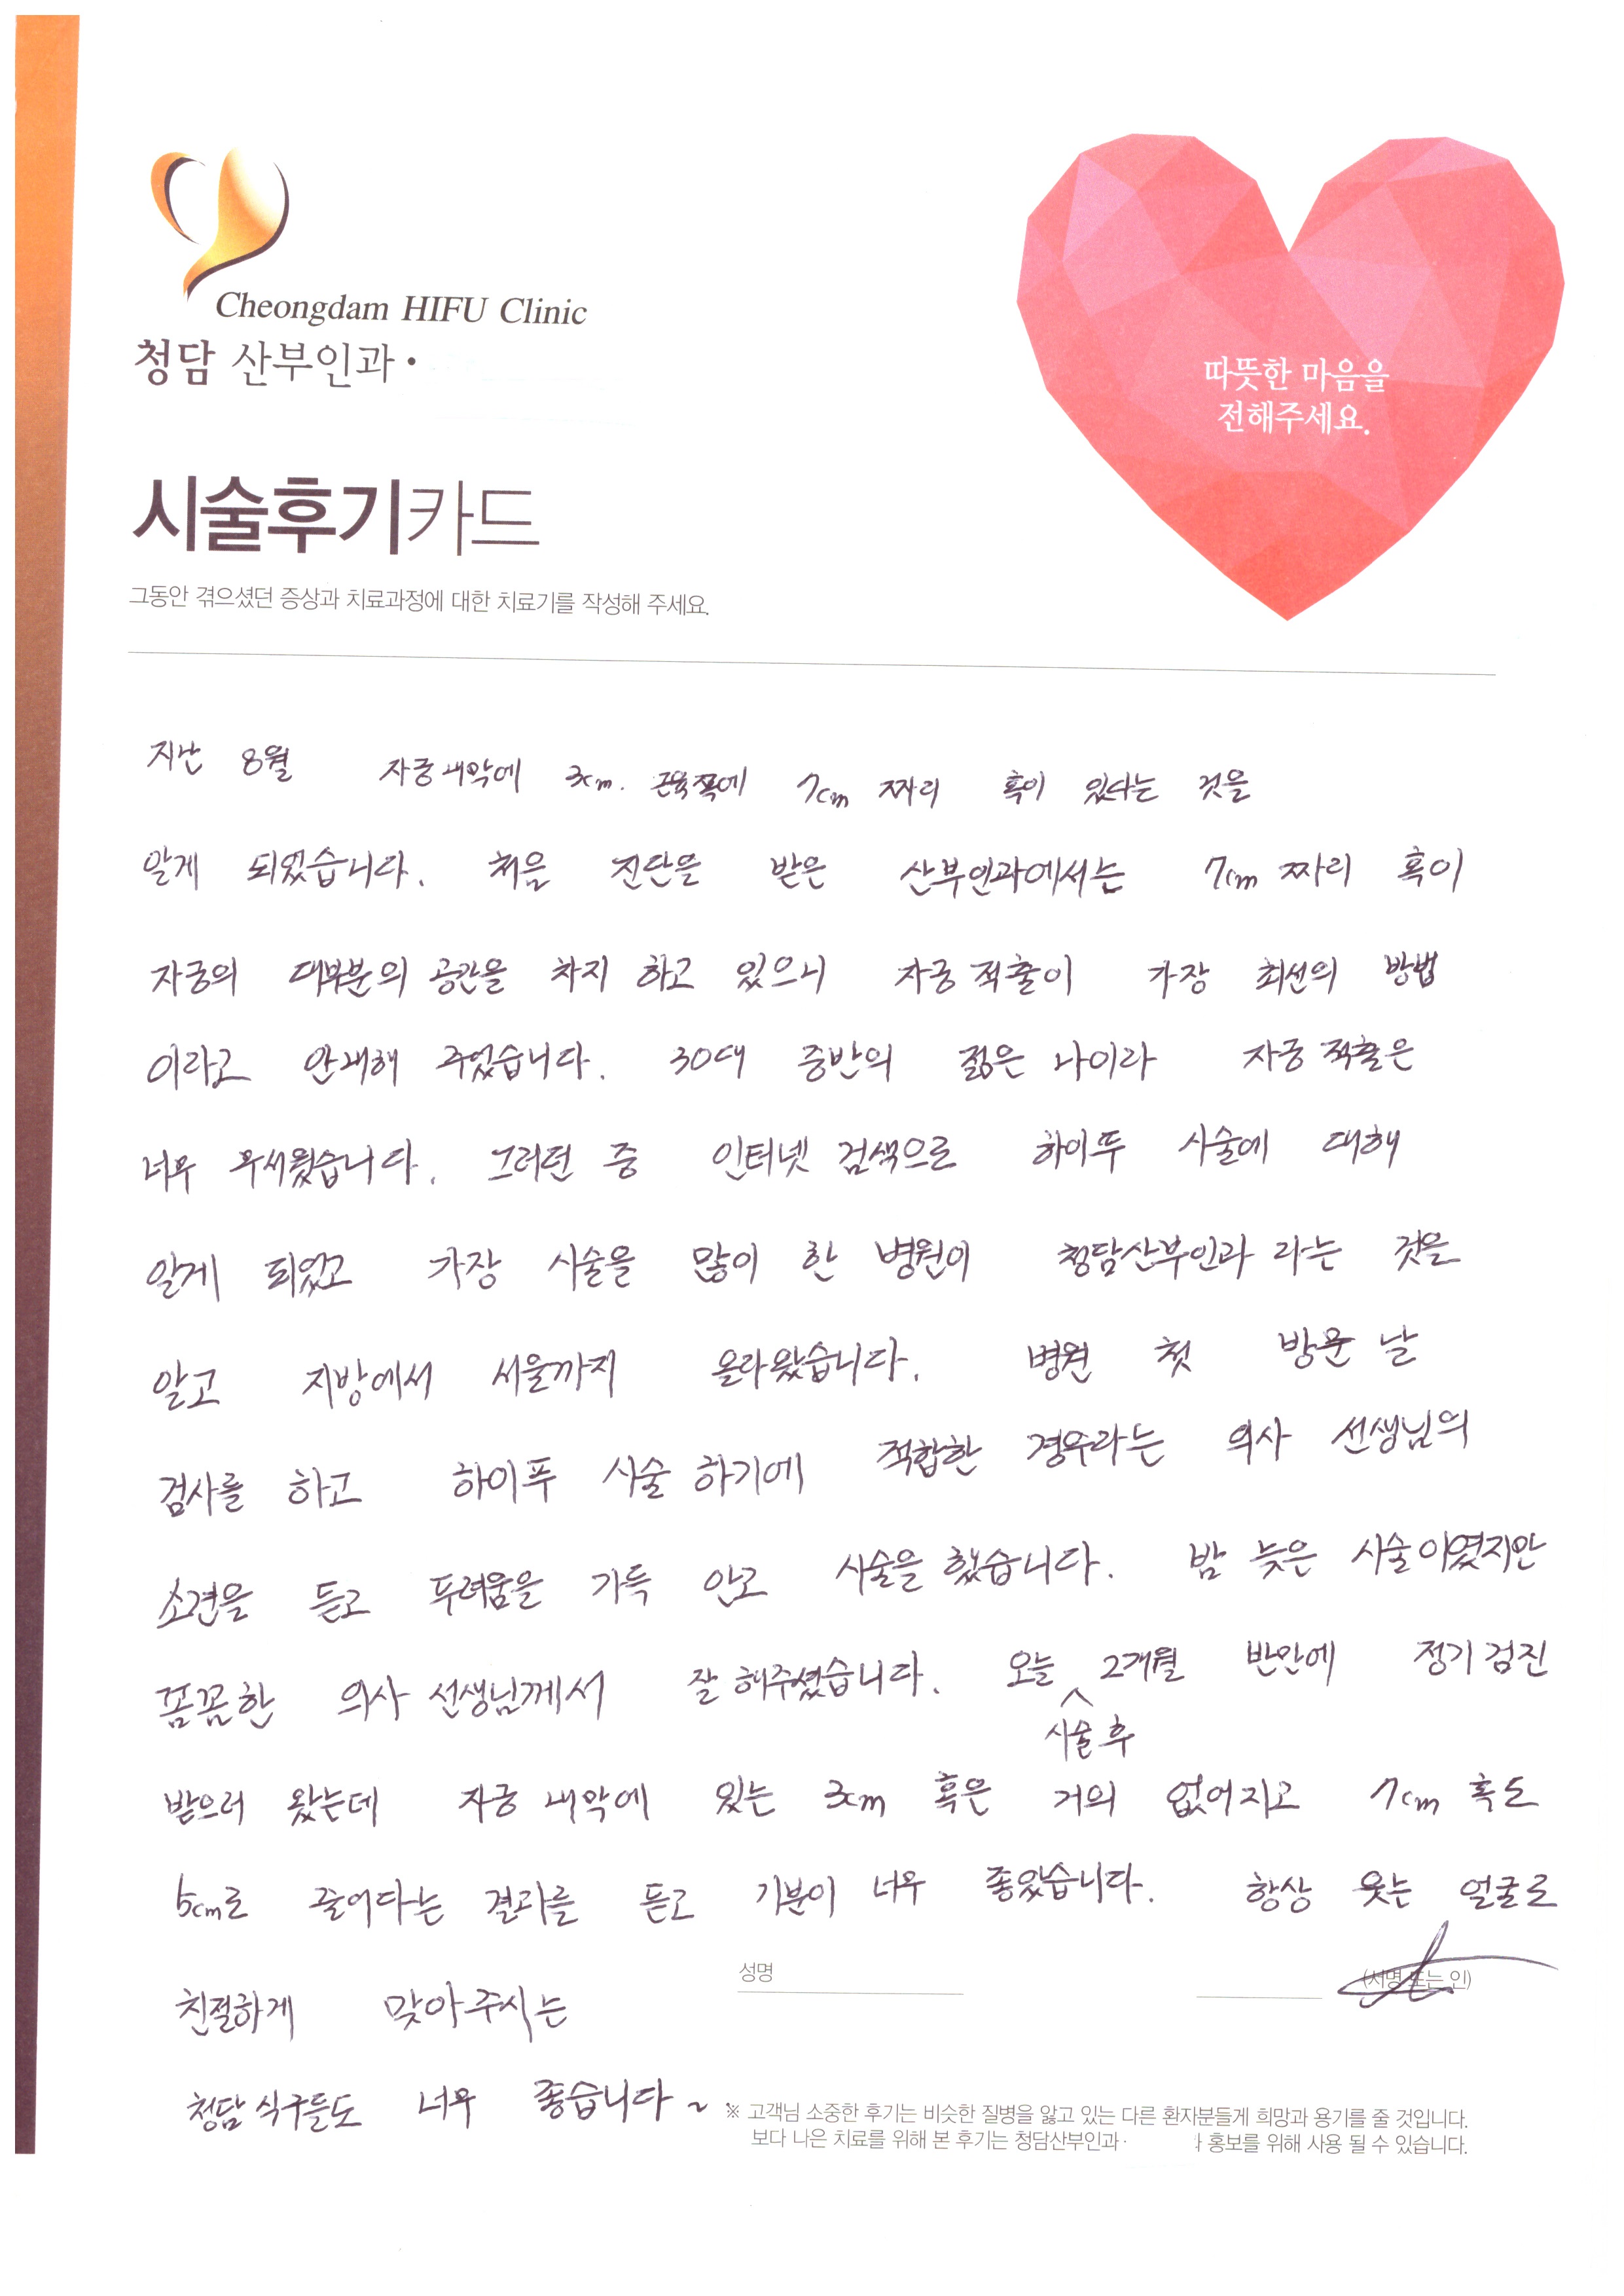 Cheongdam HIFU Clinic
청담 산부인과·
따뜻한 마음을
전해주세요.
시술후기카드
그동안 겪으셨던 증상과 치료과정에 대한 치료기를 작성해 주세요.
지난 8월 자궁내막에 3cm. 근육쪽에 7cm 짜리 혹이 있다는 것을
알게 되었습니다. 처음 진단을 받은 산부인과에서는 7cm 짜리 혹이
자궁의 대부분의 공간을 차지 하고 있으니 자궁 적출이 가장 최선의 방법
이라고 안내해 주었습니다. 30대 중반의 젊은 나이라 자궁 적출은
너무 무서웠습니다. 그러던 중 인터넷 검색으로 하이푸 시술에 대해
알게 되었고 가장 시술을 많이 한 병원이 청담산부인과 라는 것을
알고 지방에서 서울까지 올라왔습니다. 병원 첫 방문 날
검사를 하고 하이푸 시술 하기에 적합한 경우라는 의사 선생님의
소견을 듣고 두려움을 가득 안고 시술을 했습니다. 밤 늦은 시술이였지만
꼼꼼한 의사 선생님께서 잘 해주셨습니다. 오늘 2개월 반만에 정기 검진
시술 후
받으러 왔는데 자궁 내막에 있는 3cm 혹은 거의 없어지고 7cm 혹도
5cm로 줄어다는 결과를 듣고 기분이 너무 좋았습니다. 항상 웃는 얼굴로
친절하게 맞아주시는
청담 식구들도 너무 좋습니다~
성명
(서명 또는 인)
※ 고객님 소중한 후기는 비슷한 질병을 앓고 있는 다른 환자분들게 희망과 용기를 줄 것입니다.
보다 나은 치료를 위해 본 후기는 청담산부인과· 홍보를 위해 사용 될 수 있습니다.